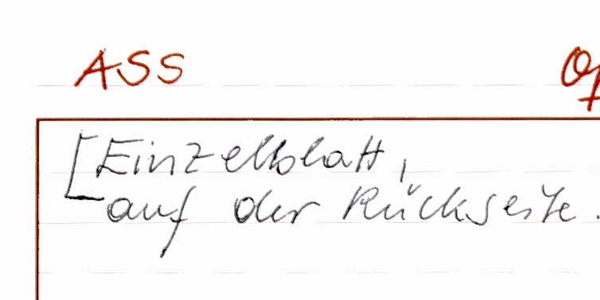 ASS
[Einzelblatt,
auf der Rückseite.